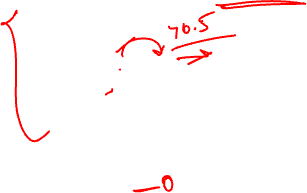 70.5
—0